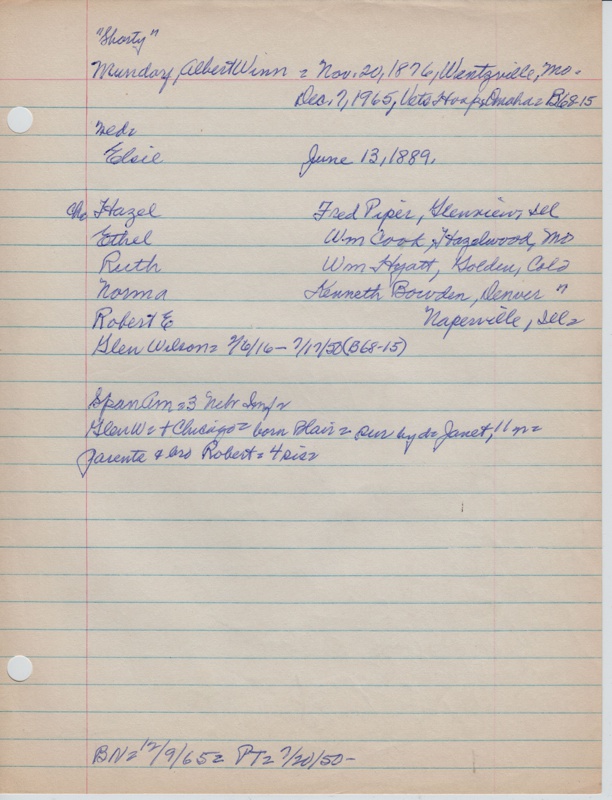 "Shorty"
Munday, Albert Winn = Nov. 20, 1876, Wentzville, Mo.
Dec. 7, 1965, Vets Hosp, Omaha = B68-15
Wed=
Elsie June 13, 1889.
Ch= Hazel Fred Piper, Glenview, Ill
Ethel Wm Cook, Hazelwood, Mo
Ruth Wm Hyatt, Golden, Colo
Norma Kenneth Bowden, Denver "
Robert E Naperville, Ill=
Glen Wilson= /6/16 - 7/17/50 (B68-15)
Span Am = 3 Nebr Inf=
Glen W= + Chicago = born Blair = sur by d= Janet, 11 m=
parents & bro Robert = 4 sis=
BN= 12/9/65= PT= 7/20/50-